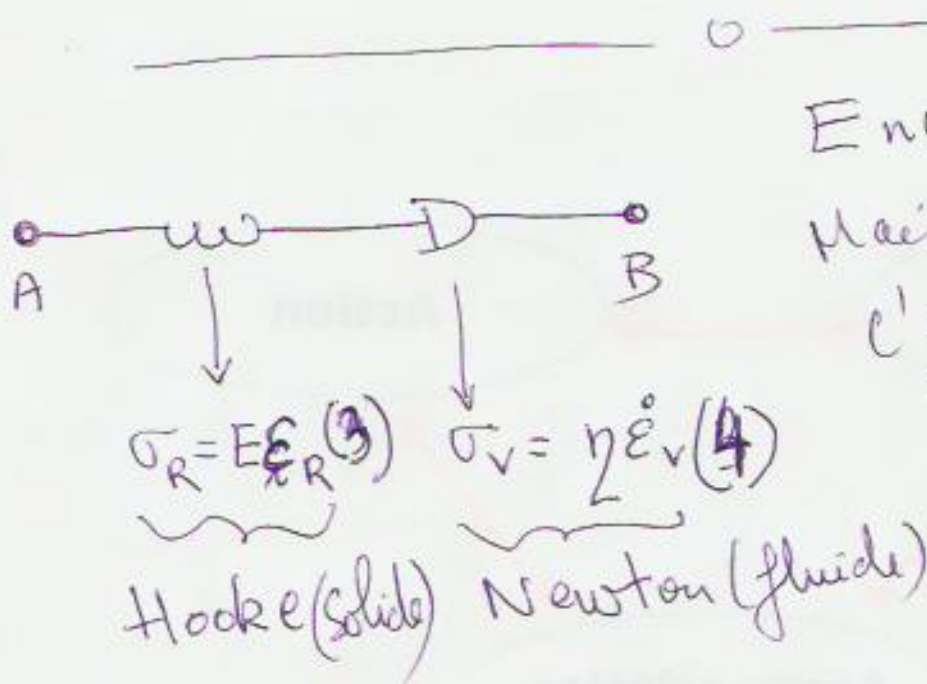 En
Mai
A B
c'
σ_R = Eε_R (3) σ_V = η ε̇_V (4)
Hooke (solide) Newton (fluide)